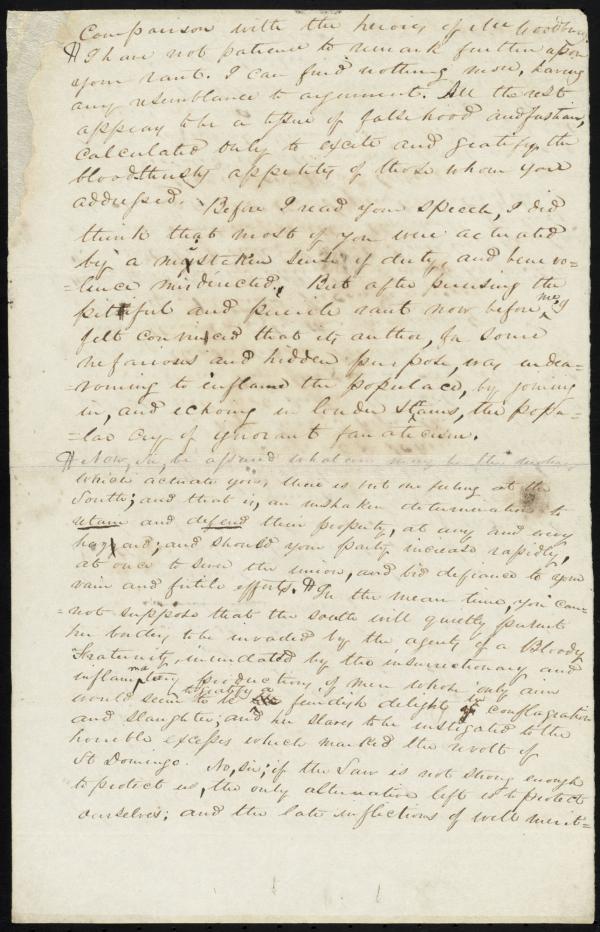 Comparison with the heroics of the
¶ I have not patience to remark further upon
your rant. I can find nothing more, having
any resemblance to argument. All the rest
appears to be a tissue of falsehood and fustian,
calculated only to excite and gratify the
bloodthirsty appetites of those whom you
addressed. Before I read your speech, I did
think that most of you were actuated
by a mistaken sense of duty, and benevo-
-lence misdirected, But after perusing the
pitiful and puerile rant now before me, I
felt convinced that its author, for some
nefarious and hidden purpose, was endea-
-vouring to inflame the populace, by joining
in, and echoing in louder strains, the popu-
-lar cry of ignorant fanaticism.
¶ Now, Sir, be assured whatever may be the motives
which actuate you, there is but one feeling at the
South; and that is, an unshaken determination to
retain and defend their property, at any and every
hazard; and should your party increase rapidly,
at once to sever the union, and bid defiance to your
vain and futile efforts. ¶ In the mean time, you can-
-not suppose that the south will quietly permit
her borders to be invaded by the agents of a Bloody
Fraternity, inundated by the insurrectionary and
inflammatory productions, of men whose only aim
would seem to be to gratify a fiendish delight in conflagration
and slaughter; and her slaves to be instigated to the
horrible excesses which marked the revolt of
St Domingo. No, sir; if the Law is not strong enough
to protect us, the only alternative left is to protect
ourselves; and the late inflictions of well merit-